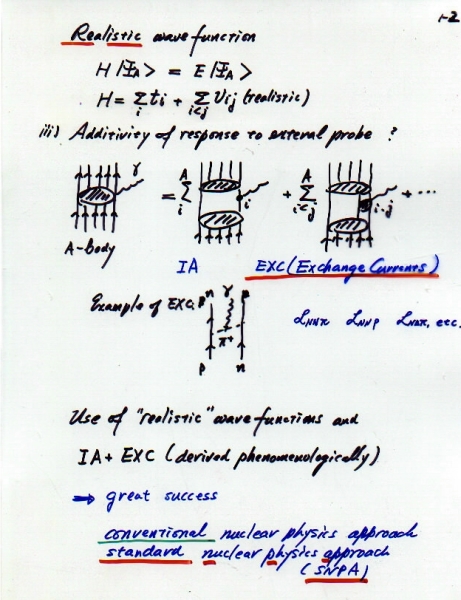 1-2
Realistic wave function
H |Φ_A> = E |Φ_A>
H = Σ_i t_i + Σ_{i<j} v_ij (realistic)
iii) Additivity of response to external probe ?
γ = Σ_i^A i + Σ_{i<j}^A i-j + ...
A-Body
IA EXC (Exchange Currents)
Example of EXC:
n γ p
π+
p n
L_NNπ L_NNρ L_NΔπ, etc.
Use of "realistic" wave functions and
IA + EXC (derived phenomenologically)
⇒ great success
conventional nuclear physics approach
standard nuclear physics approach
(SNPA)